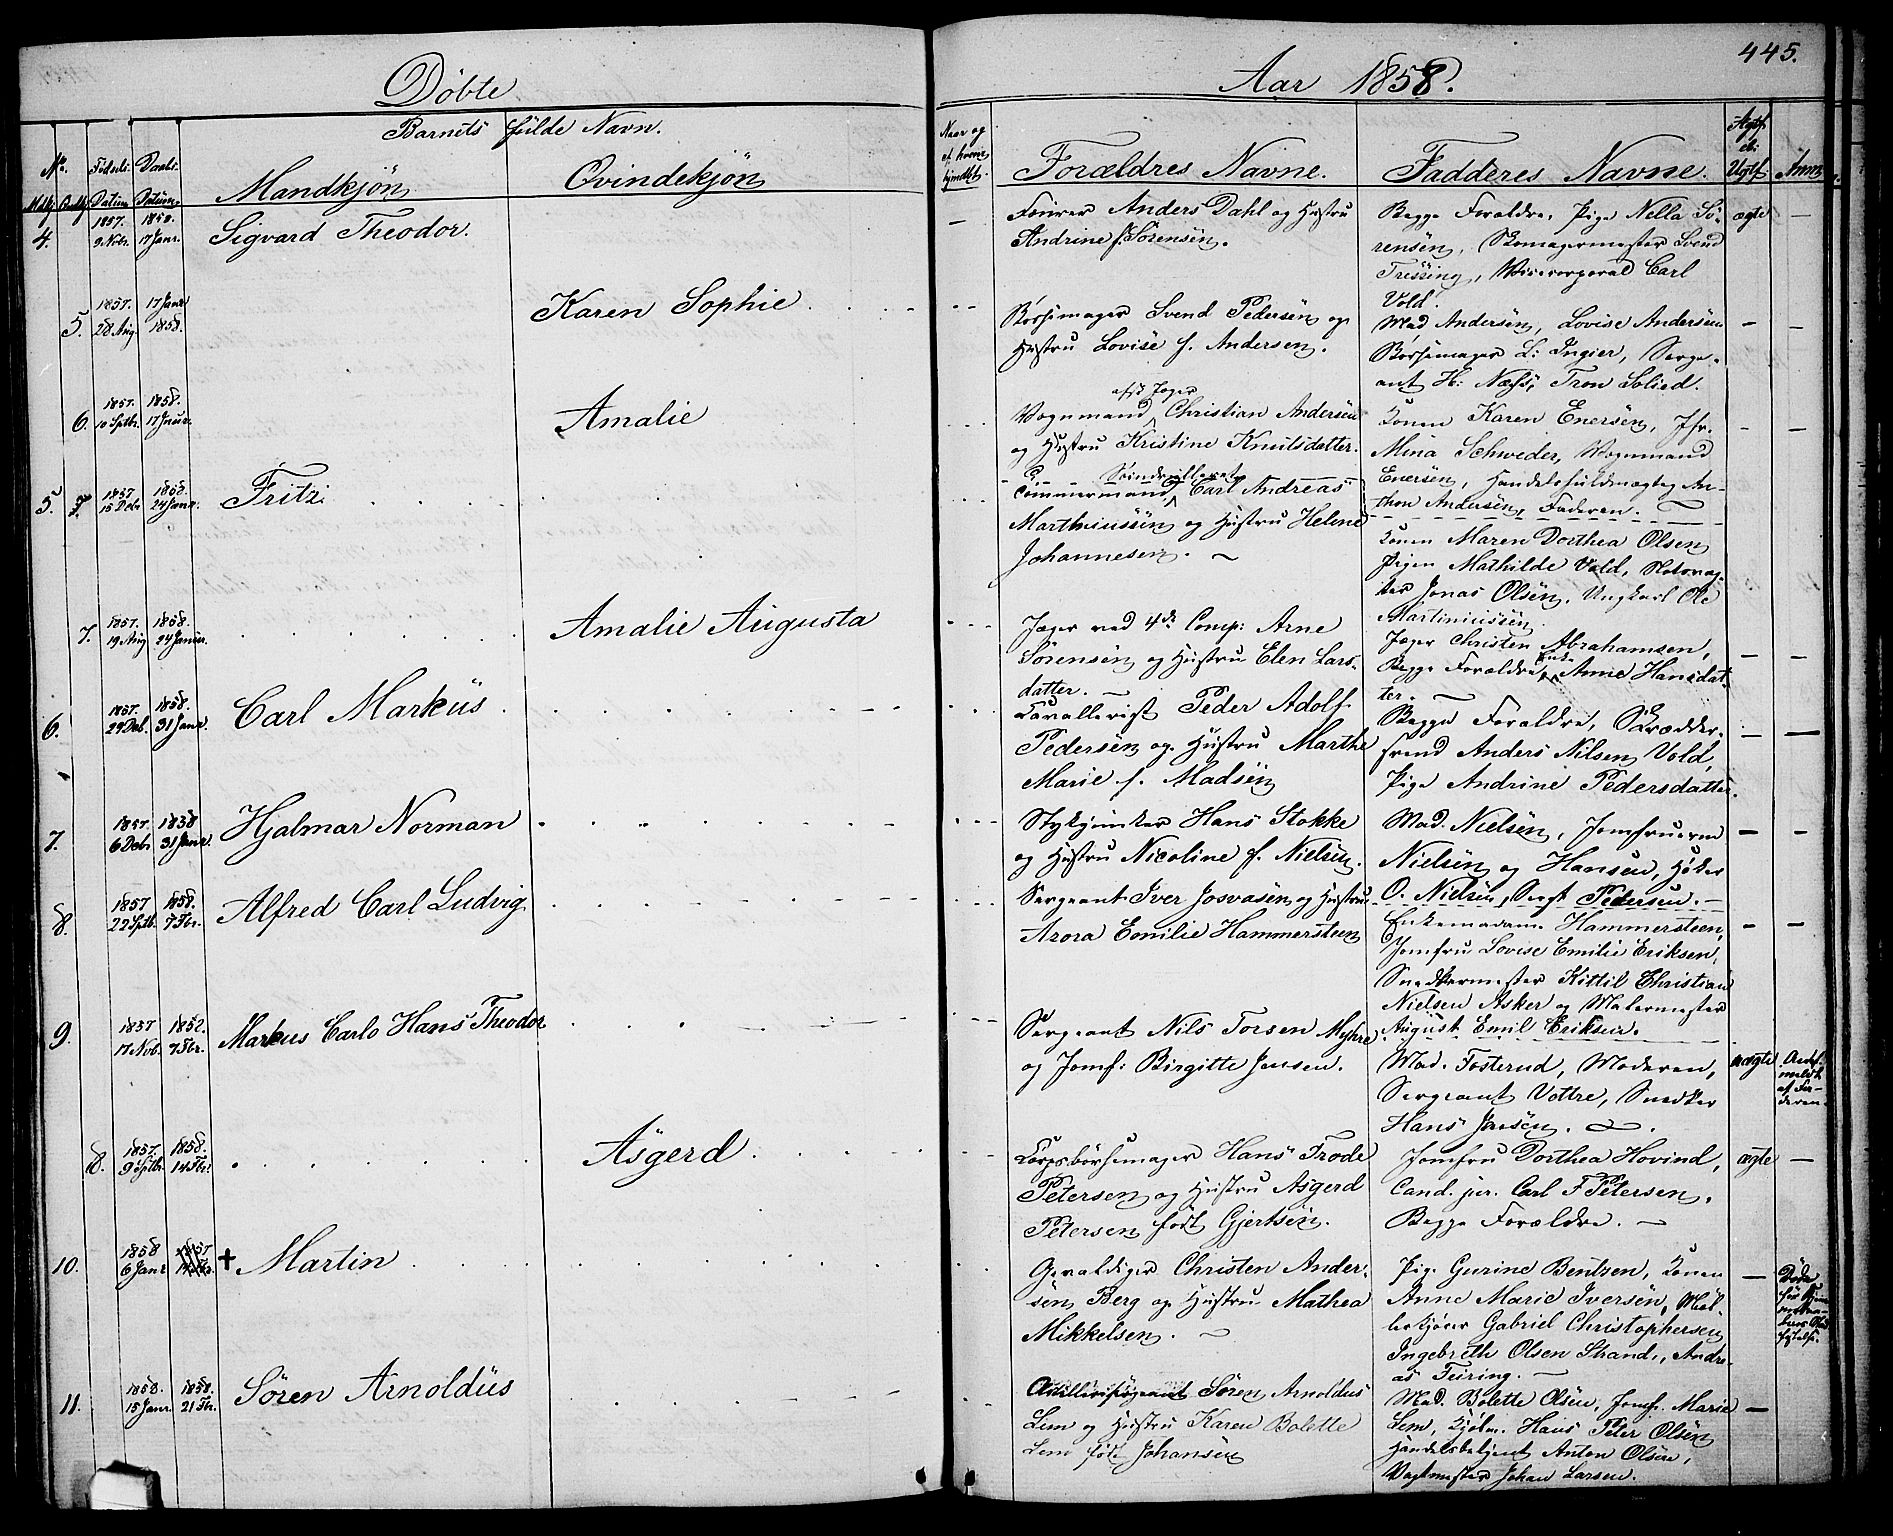 445.
Döbte
Aar 1858.
Barnets fülde Navn.
No.
Fødsels Datum
Daabs Datüm
Mandkjön
Qvindekjön
Naar og af hvem hjemdøbt.
Forældres Navne.
Fadderes Navne.
Ægtf. el. Uægtf.
Anm.
4. 1857. 9. Nobr. 1858. 17 Janr. Sigvard Theodor.
Fourer Anders Dahl og Hustru
Andrine f. Sörensen.
Begge Forældre, Pige Nella Sö-
rensen, Skomagermester Svend
Tressing, Vicecorporal Carl
Vold.
ægte
5. 1857. 28 Aug. 17 Janr 1858. Karen Sophie
Børsemager Svend Pedersen og
Hustru Lovise f. Andersen.
Mad Andersen, Lovise Andersen
Børsemager L: Ingier, Serge-
ant H: Næss, Tron Solied.
6. 1857. 10 Sptbr. 1858. 17 Janr. Amalie
afsk Jæger
Vognmand Christian Andersen
og Hustru Kristine Knutsdatter.
Konen Karen Enersen, Jfr.
Mina Schweder, Vognmand
Enersen, Handelsfuldmægtig An-
thon Andersen, Faderen.
5 7. 1857 15 Debr 1858. 24 Janr. Fritz
Tömmermand Carl Andreas
Marthiniussen og Hustru Helene
Johannesen.
Konen Maren Dorthea Olsen
Pigen Mathilde Vold,
Jonas Olsen, Ungkarl Ole
Martiniussen.
7. 1857. 19 Aug 1858. 24 Januar. Amalie Augusta
Jæger ved 4de Comp: Arne
Sörensen og Hustru Elen Lars-
datter.
Jæger Christen Abrahamsen,
Begge Forældre, Enke Anne Hansdat-
ter.
6. 1857. 29 Deb. 1858. 31 Janr. Carl Markus
Cavallerist Peder Adolf
Pedersen og Hustru Marthe
Marie f. Madsen
Begge Forældre, Skrædder-
svend Anders Nilsen Vold,
Pige Andrine Pedersdatter.
7. 1857. 6 Debr 1858 31 Janr. Hjalmar Norman
Stykjunker Hans Stokke
og Hustru Nicoline f. Nielsen.
Mad. Nielsen, Jomfruerne
Nielsen og Hansen, Høker
O. Nielsen, Sergt Pedersen.
8. 1857 22 Sptb. 1858. 7 Fbr. Alfred Carl Ludvig
Sergeant Iver Josvasen og Hustru
Arora Emilie Hammersteen
Enkemadam Hammersteen,
Jomfru Lovise Emilie Eriksen,
Snedkermester Kittil Christian
Nielsen Asker og Malermester
August Emil Eriksen.
9. 1857 17 Nob. 1852. 7 Fbr. Markus Carlo Hans Theodor
Sergeant Nils Torsen Myhre
og Jomf: Birgitte Jensen.
Mad. Fosterud, Moderen,
Sergeant Vottre, Snedker
Hans Jensen.
uægte
Anmeldt af Faderen.
8. 1857. 9 Sptbr. 1858. 14 Fbr. Asgerd
Corpsbørsemager Hans Frode
Petersen og Hustru Asgerd
Petersen född Gjertsen.
Jomfru Dorthea Hovind,
Cand. jur. Carl F Petersen,
Begge Forældre.
ægte
10. 1858 6 Janr 1857 14 Fbr. + Martin
Gevaldiger Christen Ander-
sen Berg og Hustru Mathea
Mikkelsen.
Pige Gurine Bentzen, Konen
Anne Marie Iversen, Møl-
lerkjører Gabriel Christophersen
Ingebreth Olsen Strand, Andre-
as Teiring.
Döde
11. 1858. 15 Janr. 1858. 21 Fbr. Sören Arnoldüs
Artillerisergeant Sören Arnoldus
Lem og Hustru Karen Bolette
Lem født Johansen
Mad. Bolette Olsen, Jomf. Marie
Lem, Kjøbm. Hans Peter Olsen
Handelsbetjent Anton Olsen,
Vagtmester Johan Larsen.